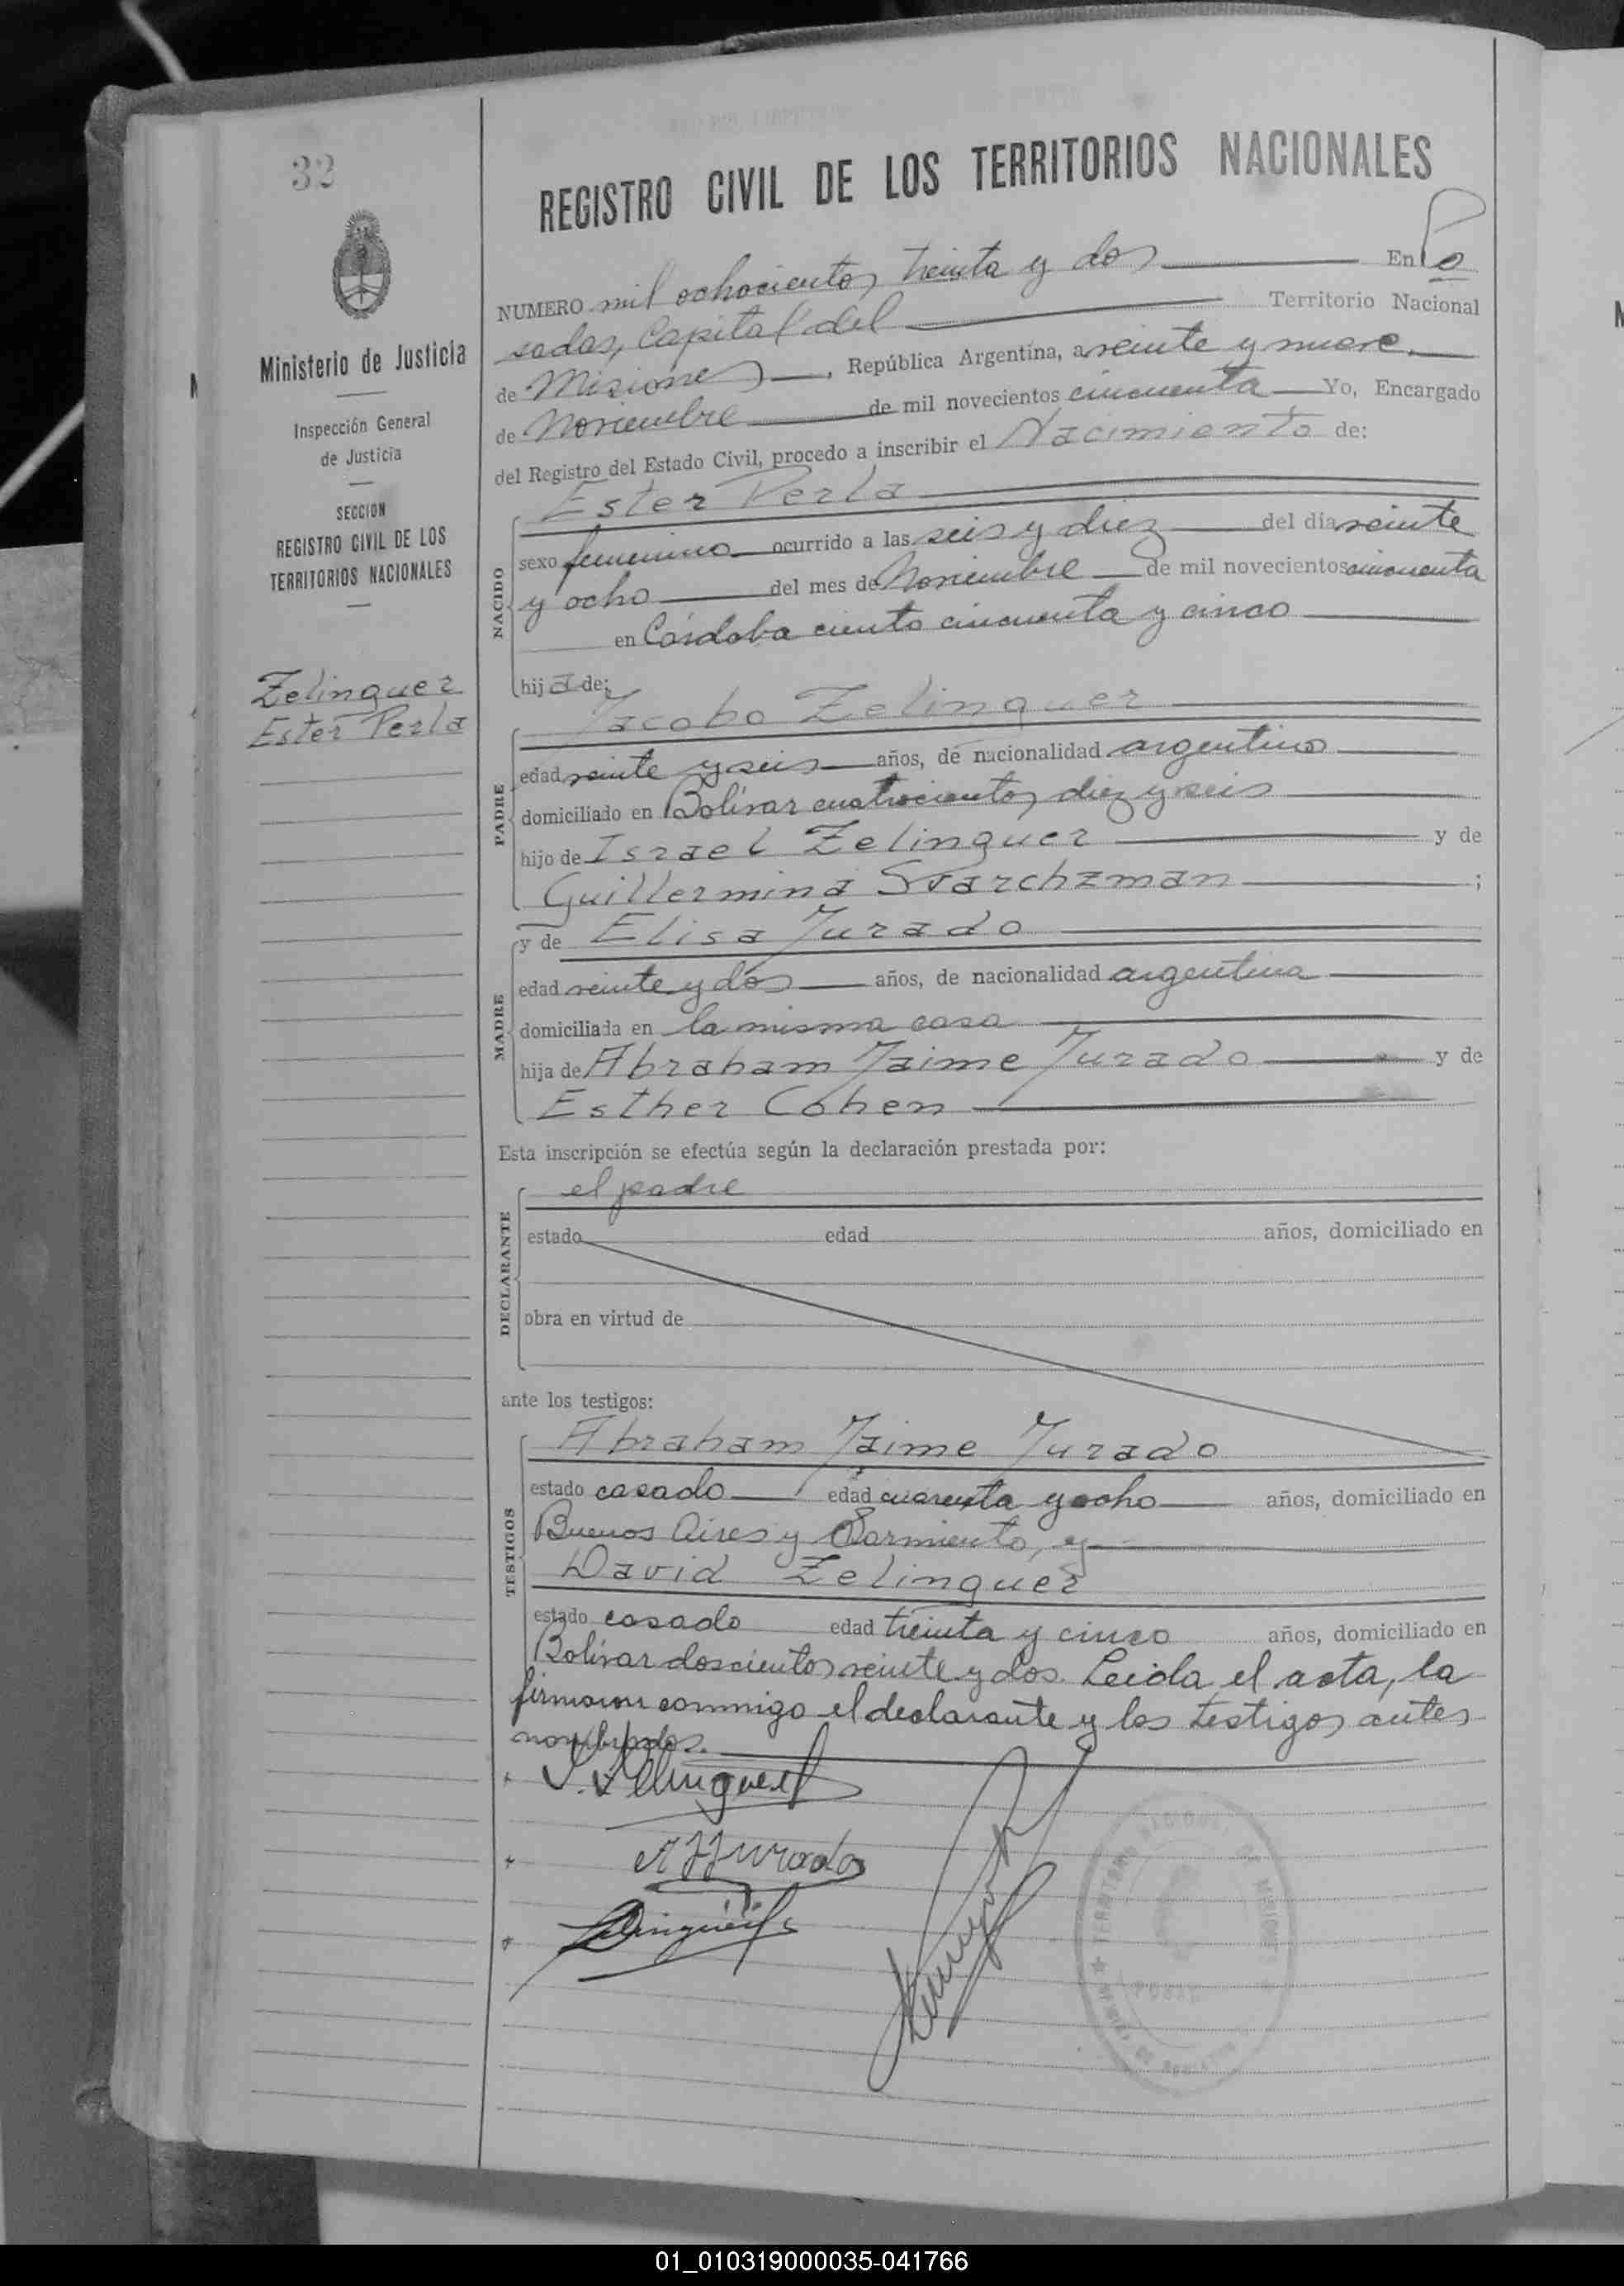 32
Ministerio de Justicia
Inspección General
de Justicia
SECCION
REGISTRO CIVIL DE LOS
TERRITORIOS NACIONALES
Zelinguer
Ester Perla
REGISTRO CIVIL DE LOS TERRITORIOS NACIONALES
NUMERO mil ochocientos treinta y dos En Po
sadas, Capital del Territorio Nacional
de Misiones, República Argentina, a veinte y nueve
de Noviembre de mil novecientos cincuenta Yo, Encargado
del Registro del Estado Civil, procedo a inscribir el Nacimiento de:
NACIDO
Ester Perla
sexo femenino ocurrido a las seis y diez del día veinte
y ocho del mes de Noviembre de mil novecientos cincuenta
en Córdoba ciento cincuenta y cinco
hija de:
PADRE
Jacobo Zelinguer
edad veinte y seis años, de nacionalidad argentino
domiciliado en Bolívar cuatrocientos diez y seis
hijo de Israel Zelinguer y de
Guillermina Starchzman ;
MADRE
y de Elisa Jurado
edad veinte y dos años, de nacionalidad argentina
domiciliada en la misma casa
hija de Abraham Jaime Jurado y de
Esther Cohen
Esta inscripción se efectúa según la declaración prestada por:
DECLARANTE
el padre
estado edad años, domiciliado en
obra en virtud de
ante los testigos:
TESTIGOS
Abraham Jaime Jurado
estado casado edad cuarenta y ocho años, domiciliado en
Buenos Aires y Sarmiento, y
David Zelinguer
estado casado edad treinta y cinco años, domiciliado en
Bolívar doscientos veinte y dos. Leída el acta, la
firmaron conmigo el declarante y los testigos antes
nombrados.
J. Zelinguer
A J Jurado
Zelinguer
TERRITORIO NACIONAL DE MISIONES
01_010319000035-041766